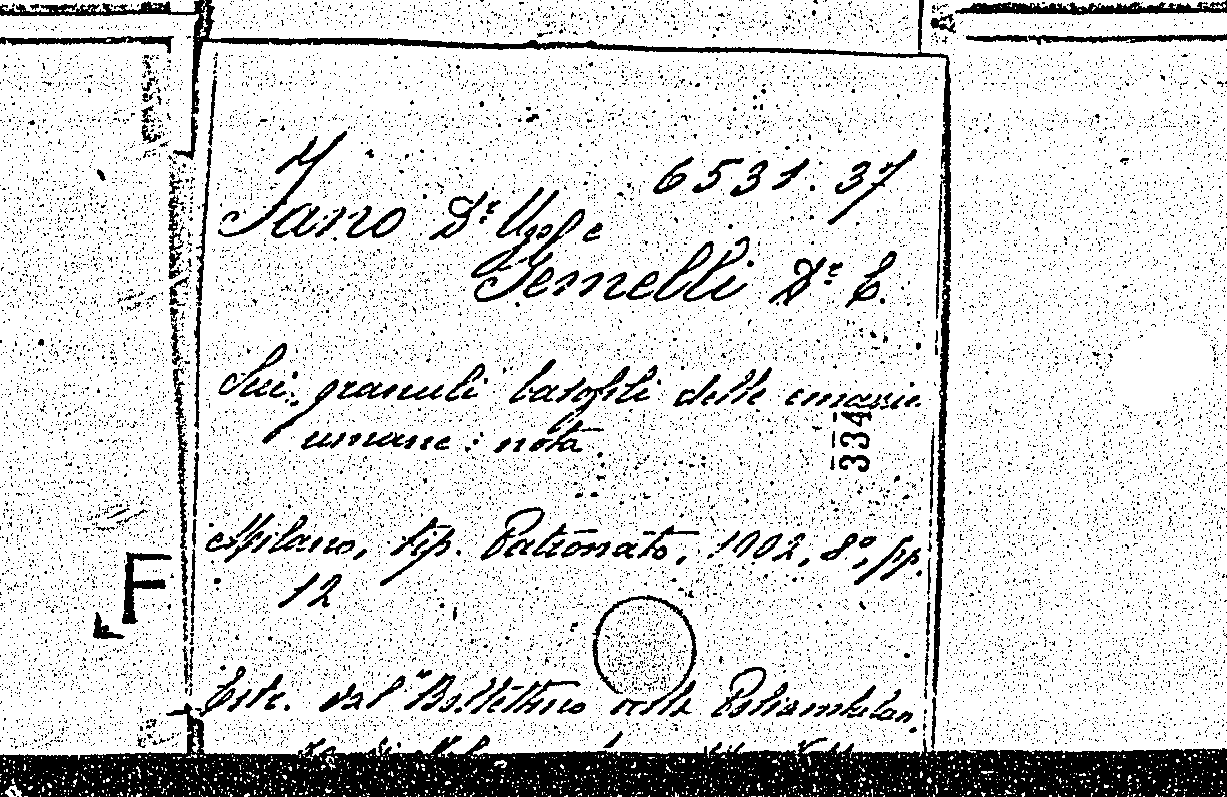 6531. 37
Jano Dr Ugo e
Gemelli Dr E.
Sui granuli basofili delle emazie
umane: nota.
334
Milano, tip. Patronato, 1902, 8º, pp.
12
F
Estr. dal "Bollettino della Poliambulan
za di